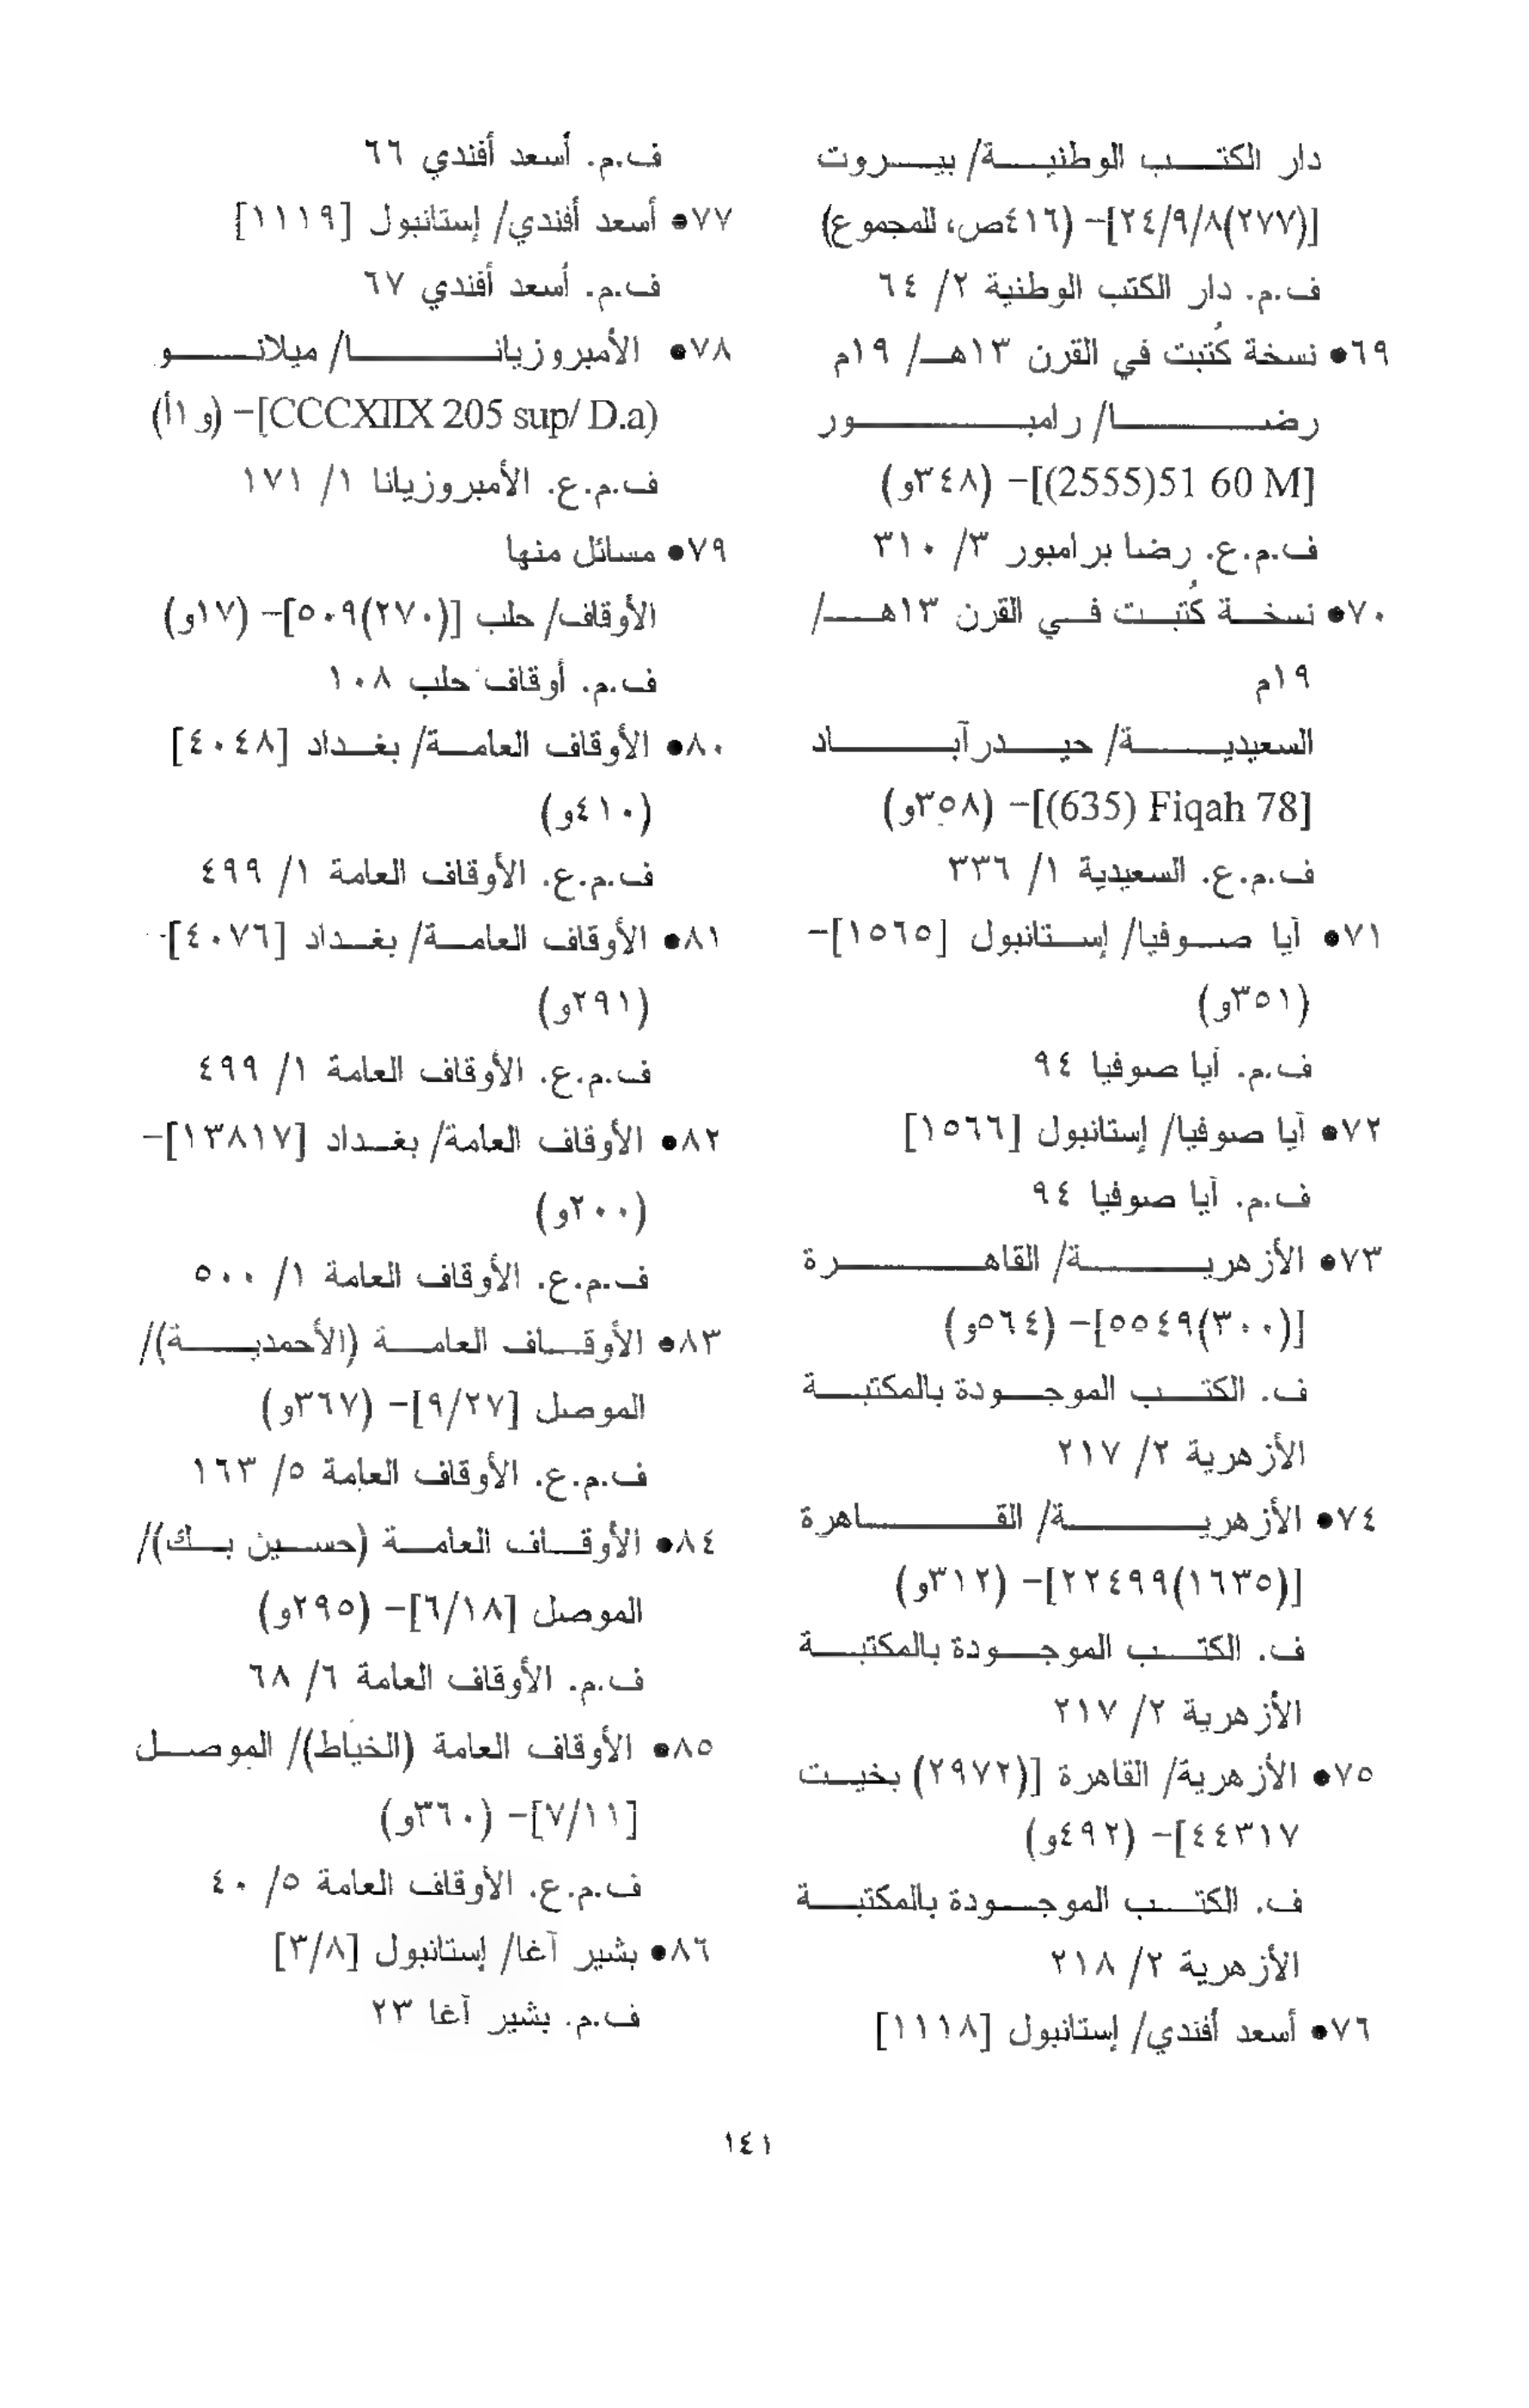 دار الكتب الوطنية/ بيروت
[(٢٧٧)٢٤/٩/٨]- (٤١٦ص، للمجموع)
ف.م. دار الكتب الوطنية ٢/ ٦٤
٦٩• نسخة كُتبت في القرن ١٣هـ/ ١٩م
رضا/ رامبور
[M 60 51(2555)]- (٣٤٨و)
ف.م.ع. رضا برامبور ٣/ ٣١٠
٧٠• نسخة كُتبت في القرن ١٣هـ/
١٩م
السعيدية/ حيدرآباد
[(635) Fiqah 78]- (٣٥٨و)
ف.م.ع. السعيدية ١/ ٣٣٦
٧١• آيا صوفيا/ إستانبول [١٥٦٥]-
(٣٥١و)
ف.م. آيا صوفيا ٩٤
٧٢• آيا صوفيا/ إستانبول [١٥٦٦]
ف.م. آيا صوفيا ٩٤
٧٣• الأزهرية/ القاهرة
[(٣٠٠)٥٥٤٩]- (٥٦٤و)
ف. الكتب الموجودة بالمكتبة
الأزهرية ٢/ ٢١٧
٧٤• الأزهرية/ القاهرة
[(١٦٣٥)٢٢٤٩٩]- (٣١٢و)
ف. الكتب الموجودة بالمكتبة
الأزهرية ٢/ ٢١٧
٧٥• الأزهرية/ القاهرة [(٢٩٧٢) بخيت
٤٤٣١٧]- (٤٩٢و)
ف. الكتب الموجودة بالمكتبة
الأزهرية ٢/ ٢١٨
٧٦• أسعد أفندي/ إستانبول [١١١٨]
ف.م. أسعد أفندي ٦٦
٧٧• أسعد أفندي/ إستانبول [١١١٩]
ف.م. أسعد أفندي ٦٧
٧٨• الأمبروزيانا/ ميلانو
(CCCXIIX 205 sup/ D.a]- (و ١أ)
ف.م.ع. الأمبروزيانا ١/ ١٧١
٧٩• مسائل منها
الأوقاف/ حلب [(٢٧٠)٥٠٩]- (١٧و)
ف.م. أوقاف حلب ١٠٨
٨٠• الأوقاف العامة/ بغداد [٤٠٤٨]
(٤١٠و)
ف.م.ع. الأوقاف العامة ١/ ٤٩٩
٨١• الأوقاف العامة/ بغداد [٤٠٧٦]-
(٢٩١و)
ف.م.ع. الأوقاف العامة ١/ ٤٩٩
٨٢• الأوقاف العامة/ بغداد [١٣٨١٧]-
(٢٠٠و)
ف.م.ع. الأوقاف العامة ١/ ٥٠٠
٨٣• الأوقاف العامة (الأحمدية)/
الموصل [٩/٢٧]- (٣٦٧و)
ف.م.ع. الأوقاف العامة ٥/ ١٦٣
٨٤• الأوقاف العامة (حسين بك)/
الموصل [٦/١٨]- (٢٩٥و)
ف.م. الأوقاف العامة ٦/ ٦٨
٨٥• الأوقاف العامة (الخيّاط)/ الموصل
[٧/١١]- (٣٦٠و)
ف.م.ع. الأوقاف العامة ٥/ ٤٠
٨٦• بشير آغا/ إستانبول [٣/٨]
ف.م. بشير آغا ٢٣
١٤١